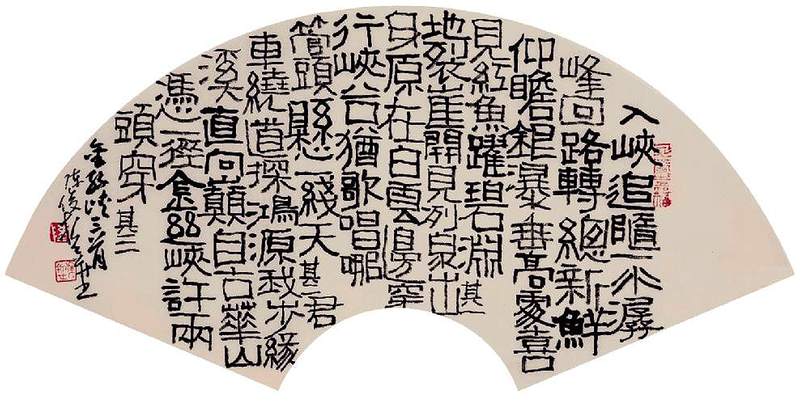 入峽追隨一水孱
峰回路轉總新鮮
仰瞻銀瀑垂高處喜
見紅魚躍碧淵其一
地裂崖開見列泉出
身原在白雲邊穿
行峽谷猶歌唱哪
管頭懸一綫天其二君
車繞道探鴻源我步緣
溪直向顛自古華山
憑一徑金絲峽許兩
頭穿其三
金絲峽三首